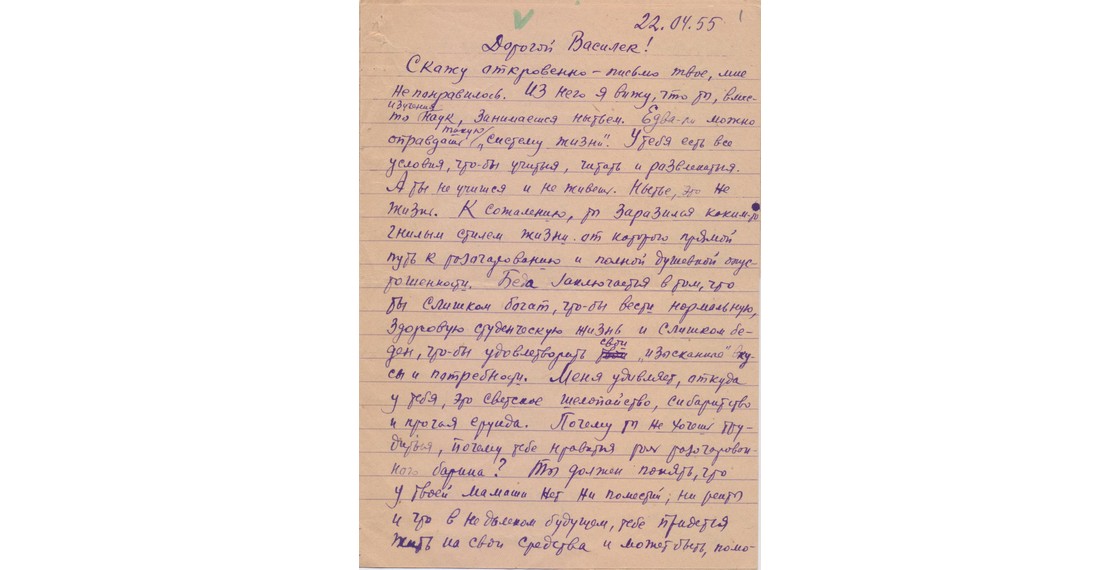 1
22.04.55
Дорогой Василек!
Скажу откровенно – письмо твое, мне
не понравилось. Из него я вижу, что ты, вмес-
изучения
то Наук, занимаешся нытьем. Едва-ли можно
такую
оправдать „систему жизни". У тебя есть все
условия, что-бы учиться, читать и развлекаться.
А ты не учишся и не живешь. Нытье, это не
жизнь. К сожалению, ты заразился каким-то
гнилым стилем жизни от которого прямой
путь к разочарованию и полной душевной опус-
тошенности. Беда заключается в том, что
ты слишком богат, что-бы вести нормальную,
здоровую студенческую жизнь и слишком бе-
свои
ден, что-бы удовлетворить „изысканные" вку-
сы и потребности. Меня удивляет, откуда
у тебя, это светское шелопайство, сибаритство
и прочая ерунда. Почему ты не хочешь тру-
диться, почему тебе нравится роль разочарован-
ного барина? Ты должен понять, что
у твоей мамаши нет ни поместий, ни ренты
и что в недалеком будущем, тебе придется
жить на свои средства и может быть, помо-